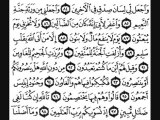 وَٱجْعَل لِّى لِسَانَ صِدْقٍ فِى ٱلْـَٔاخِرِينَ ٨٤ وَٱجْعَلْنِى مِن وَرَثَةِ جَنَّةِ
ٱلنَّعِيمِ ٨٥ وَٱغْفِرْ لِأَبِىٓ إِنَّهُۥ كَانَ مِنَ ٱلضَّآلِّينَ ٨٦ وَلَا تُخْزِنِى يَوْمَ
يُبْعَثُونَ ٨٧ يَوْمَ لَا يَنفَعُ مَالٌ وَلَا بَنُونَ ٨٨ إِلَّا مَنْ أَتَى ٱللَّهَ
بِقَلْبٍ سَلِيمٍ ٨٩ وَأُزْلِفَتِ ٱلْجَنَّةُ لِلْمُتَّقِينَ ٩٠ وَبُرِّزَتِ ٱلْجَحِيمُ
لِلْغَاوِينَ ٩١ وَقِيلَ لَهُمْ أَيْنَ مَا كُنتُمْ تَعْبُدُونَ ٩٢ مِن دُونِ ٱللَّهِ هَلْ
يَنصُرُونَكُمْ أَوْ يَنتَصِرُونَ ٩٣ فَكُبْكِبُوا۟ فِيهَا هُمْ وَٱلْغَاوُۥنَ ٩٤ وَجُنُودُ إِبْلِيسَ
أَجْمَعُونَ ٩٥ قَالُوا۟ وَهُمْ فِيهَا يَخْتَصِمُونَ ٩٦ تَٱللَّهِ إِن كُنَّا لَفِى